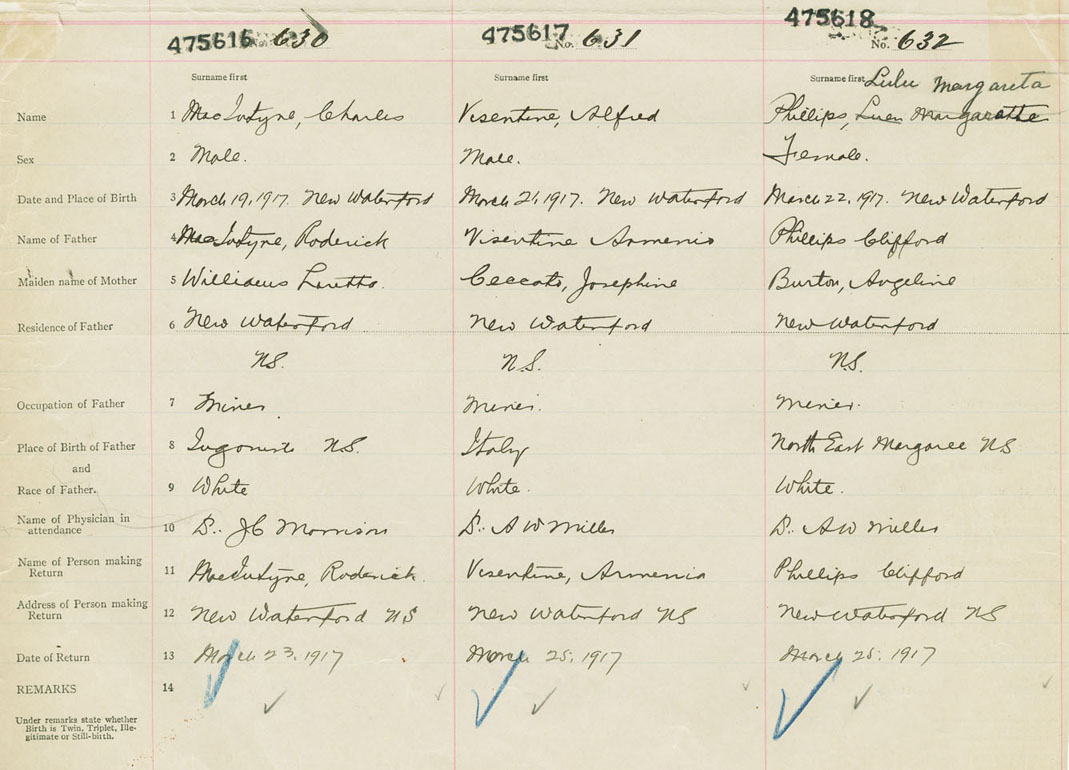 475616 No. 630 475617 No. 631 475618 No. 632
Surname first Surname first Surname first Lulu Margareta
Name 1 MacIntyne, Charles Visentine, Alfred Phillips, Margarethe
Sex 2 Male. Male. Female.
Date and Place of Birth 3 March 19, 1917. New Waterford March 21, 1917. New Waterford March 22, 1917. New Waterford
Name of Father 4 MacIntyne, Roderick Visentine Armenio Phillips Clifford
Maiden name of Mother 5 Williams Loretto. Ceccato, Josephine Burton, Angeline
Residence of Father 6 New Waterford New Waterford New Waterford
NS. N.S. NS.
Occupation of Father 7 Miner. Miner. Miner.
Place of Birth of Father 8 NS. Italy North East Margaree NS
and
Race of Father. 9 White White. White.
Name of Physician in
attendance 10 D. JC Morrison D. AW Miller D. AW Miller
Name of Person making
Return 11 MacIntyne, Roderick. Visentine, Armenio Phillips Clifford
Address of Person making
Return 12 New Waterford NS New Waterford NS New Waterford NS
Date of Return 13 March 23, 1917 March 25, 1917 March 25, 1917
REMARKS 14
Under remarks state whether
Birth is Twin, Triplet, Ille-
gitimate or Still-birth.